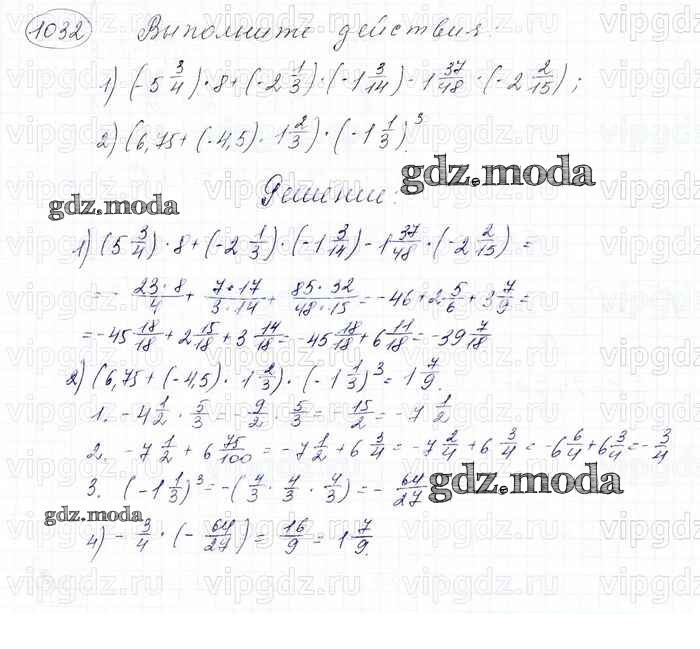 1032 Выполните действия:
1) (-5 3/4) · 8 + (-2 1/3) · (-1 3/14) - 1 37/48 · (-2 2/15);
2) (6,75 + (-4,5) · 1 2/3) · (-1 1/3)³.
gdz.moda
Решение:
gdz.moda
1) (5 3/4) · 8 + (-2 1/3) · (-1 3/14) - 1 37/48 · (-2 2/15) =
= - 23·8/4 + 7·17/3·14 + 85·32/48·15 = -46 + 2 5/6 + 3 7/9 =
= -45 18/18 + 2 15/18 + 3 14/18 = -45 18/18 + 6 11/18 = -39 7/18
2) (6,75 + (-4,5) · 1 2/3) · (-1 1/3)³ = 1 7/9.
1. -4 1/2 · 5/3 = - 9/2 · 5/3 = - 15/2 = -7 1/2
2. -7 1/2 + 6 75/100 = -7 1/2 + 6 3/4 = -7 2/4 + 6 3/4 = -6 6/4 + 6 3/4 = - 3/4
3. (-1 1/3)³ = -(4/3 · 4/3 · 4/3) = - 64/27
gdz.moda
gdz.moda
4) - 3/4 · (- 64/27) = 16/9 = 1 7/9.
vipgdz.ru